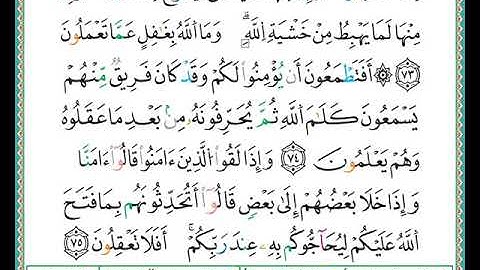 مِنْهَا لَمَا يَهْبِطُ مِنْ خَشْيَةِ ٱللَّهِ ۗ وَمَا ٱللَّهُ بِغَٰفِلٍ عَمَّا تَعْمَلُونَ
﴿٧٣﴾ ۞ أَفَتَطْمَعُونَ أَن يُؤْمِنُوا۟ لَكُمْ وَقَدْ كَانَ فَرِيقٌ مِّنْهُمْ
يَسْمَعُونَ كَلَٰمَ ٱللَّهِ ثُمَّ يُحَرِّفُونَهُۥ مِنۢ بَعْدِ مَا عَقَلُوهُ
وَهُمْ يَعْلَمُونَ ﴿٧٤﴾ وَإِذَا لَقُوا۟ ٱلَّذِينَ ءَامَنُوا۟ قَالُوٓا۟ ءَامَنَّا
وَإِذَا خَلَا بَعْضُهُمْ إِلَىٰ بَعْضٍ قَالُوٓا۟ أَتُحَدِّثُونَهُم بِمَا فَتَحَ
ٱللَّهُ عَلَيْكُمْ لِيُحَآجُّوكُم بِهِۦ عِندَ رَبِّكُمْ ۚ أَفَلَا تَعْقِلُونَ ﴿٧٥﴾